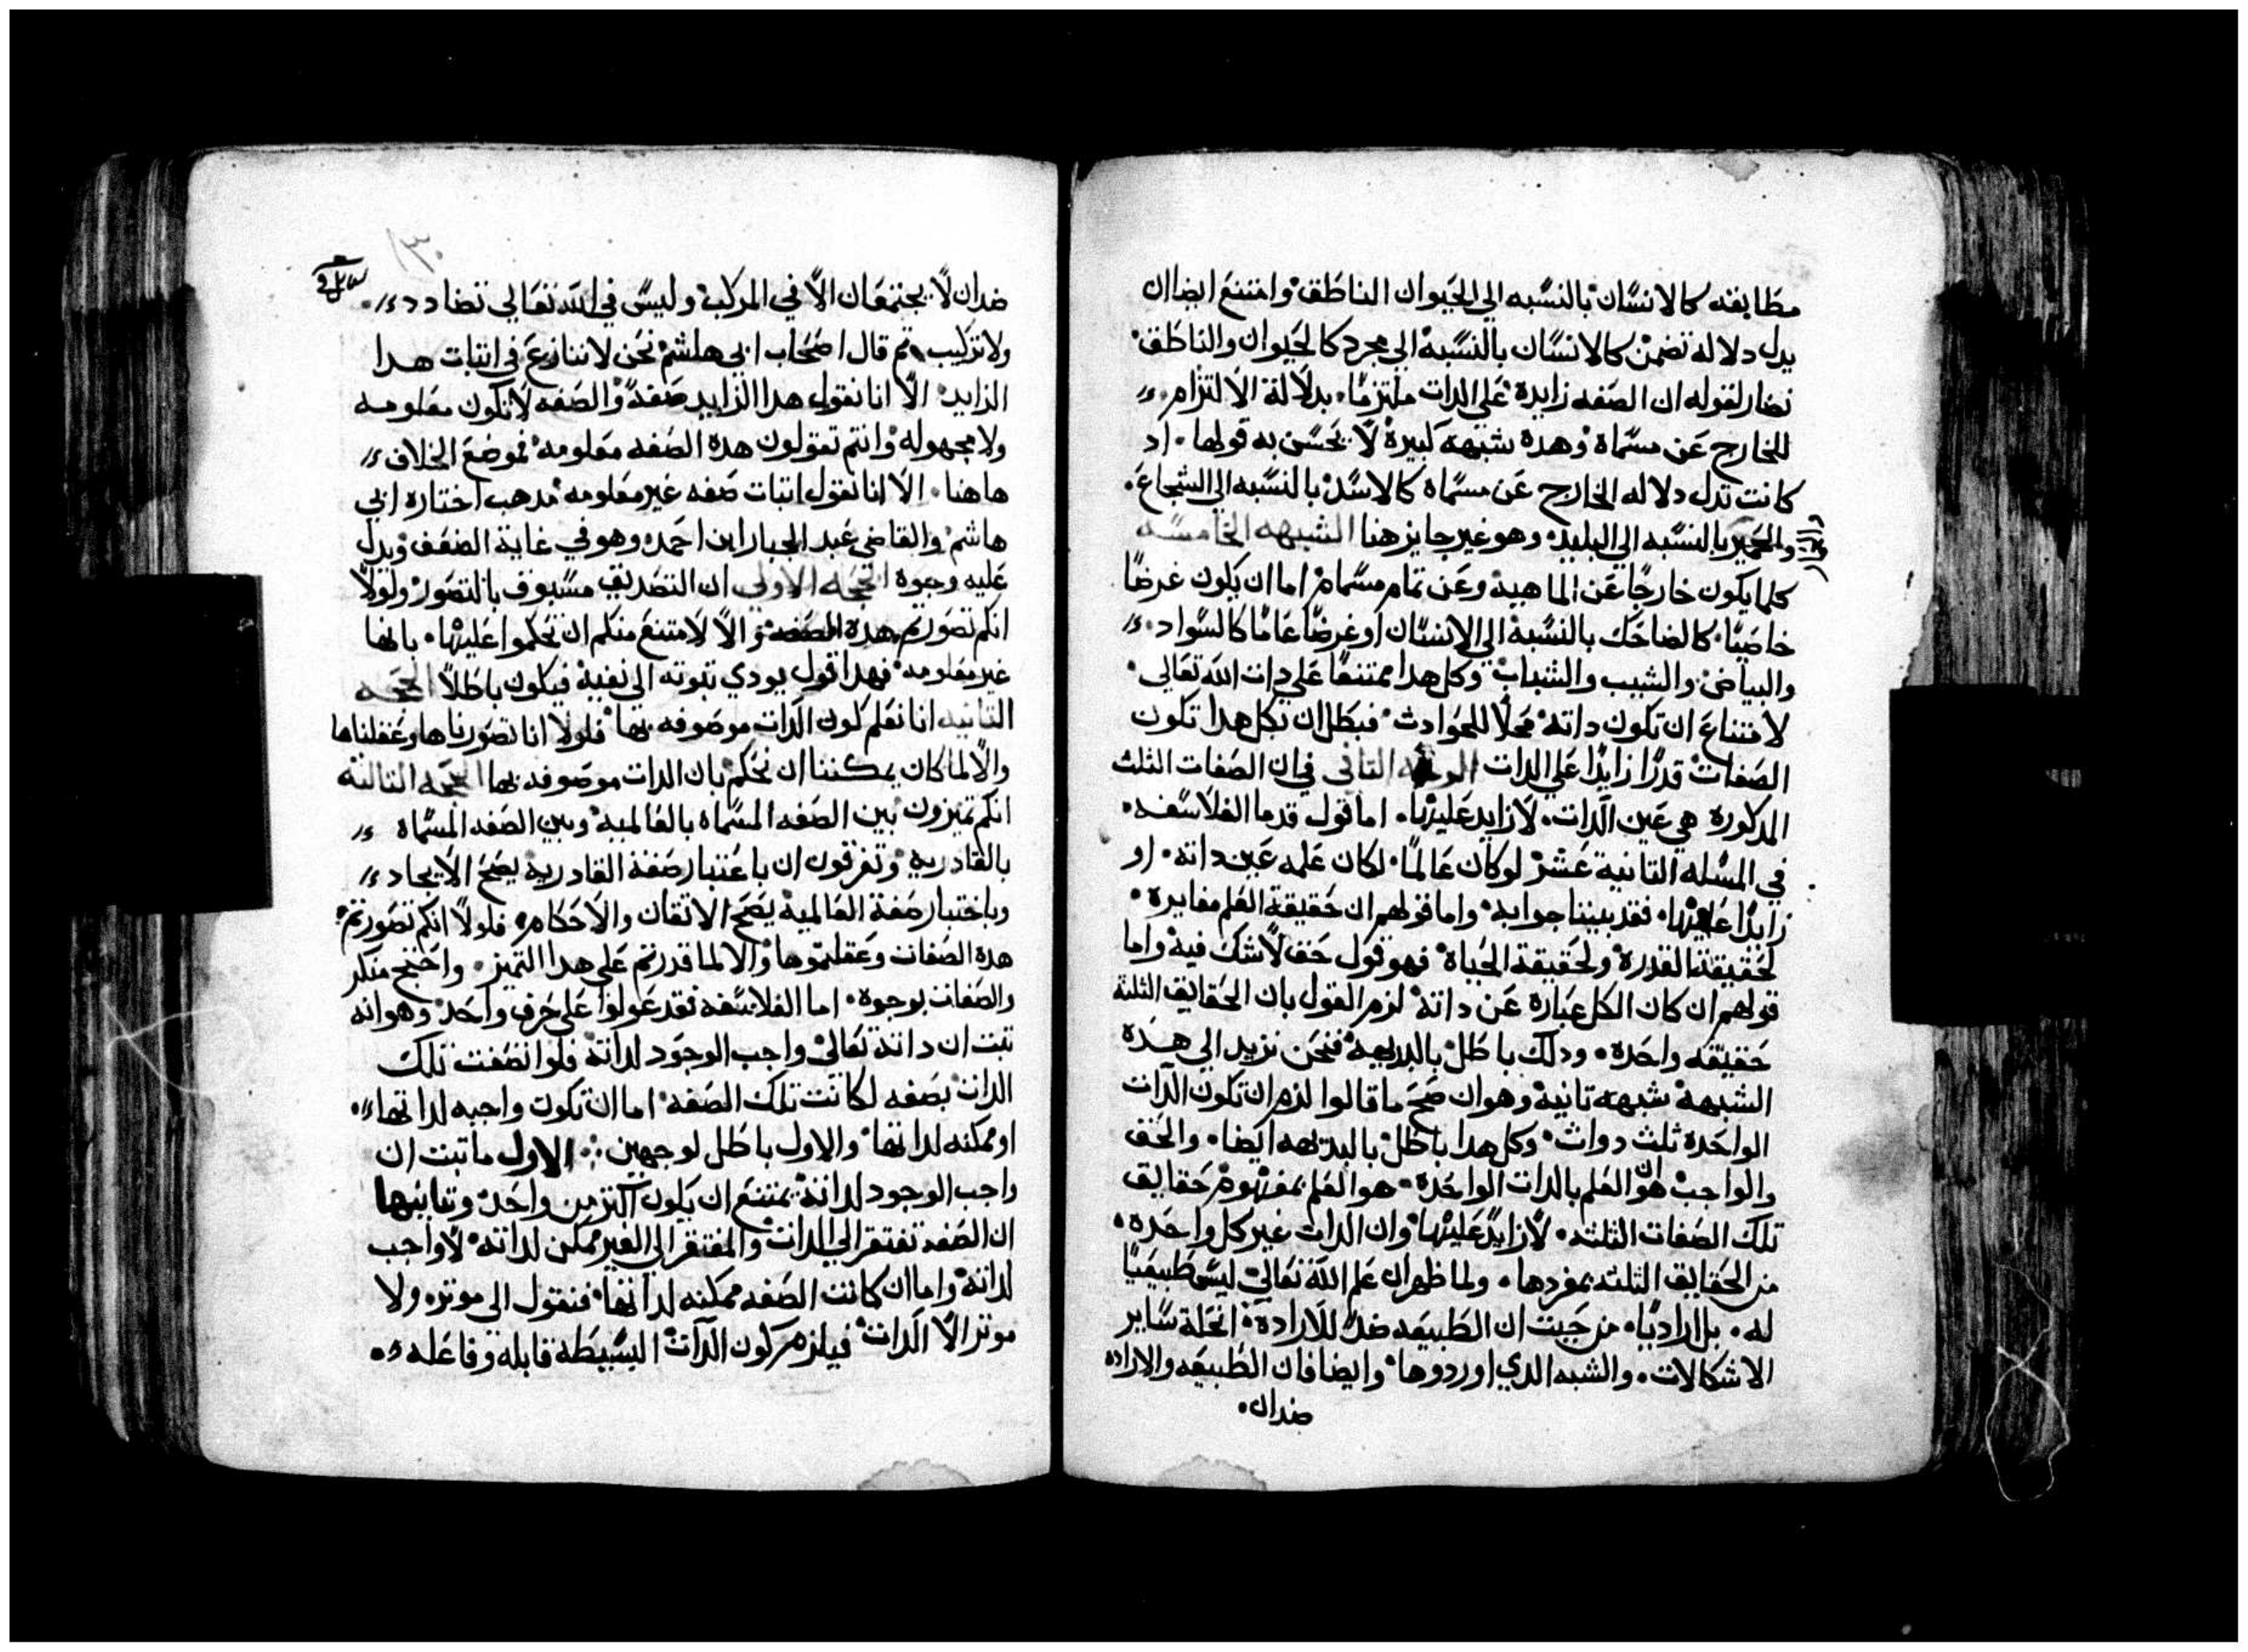 مطابقه كالانسان بالنسبه الي الحيوان الناطق وامتنع ايضا ان
يدل دلاله تضمن كالانسان بالنسبة الي مجرد كالحيوان والناطق
نصار لقوله ان الصفه زايدة علي الدات ملتزمًا بدلالة الالتزام
للخارج عن مسماة وهده شبهة كبيرة لا يحسن به قولها اد
كانت تدل دلاله الخارج عن مسماه كالاسد بالنسبه الي الشجاع
والحمير بالنسبه الي البليد وهو غير جايز هنا الشبهه الخامسه
كلما يكون خارجًا عن الماهية وعن تمام مسمام اما ان يكون عرضًا
خاصيًا كالضاحك بالنسبة الي الانسان او عرضًا عامًا كالسواد
والبياض والشبب والشباب وكل هدا ممتنعًا علي دات الله تعالي
لامتناع ان تكون داته محلًا للحوادث فبطل ان بكل هدا تكون
الصفات قدرًا زايدًا علي الدات الوجه التاني في ان الصفات الثلث
المدكورة هي عين الدات لا زايد عليها اما قول قدما الفلاسفه
في المسله التانية عشر لو كان عالمًا لكان علمه عين داته او
زايدًا عليها فقد بيننا جوابه واما قولهم ان حقيقة العلم مغايرة
لحقيقة القدرة ولحقيقة الحياة فهو قول حق لا شك فيه واما
قولهم ان كان الكل عبارة عن داته لزم القول بان الحقايق الثلثة
حقيقه واحدة ودلك باطل بالبديهه فنحن نزيد الي هده
الشبهة شبهة تانية وهو ان صح ما قالوا لزم ان تكون الدات
الواحدة ثلث دوات وكل هدا باطل بالبديهه ايضا والحق
والواجب هو ان العلم بالدات الواحدة هو العلم بمفهوم حقايق
تلك الصفات الثلثه لا زايد عليها وان الدات غير كل واحده
من الحقايق الثلثه بمفردها ولما ظهر ان علم الله تعالي ليس طبيعيًا
له بل اراديًا من حيت ان الطبيعه ضد للارادة انحلة ساير
الاشكالات والشبه الدي اوردوها وايضا فان الطبيعه والاراده
ضدان
١٣٠
ضدان لا يجتمعان الا في المركب وليس في الله تعالي تضادد
ولا تركيب تم قال اصحاب ابي هاشم نحن لا ننازع في اتبات هدا
الزايد الا انا نقول هدا الزايد صفة والصفه لا تكون معلومه
ولا مجهوله وانتم تقولون هده الصفه معلومه فموضع الخلاف
هاهنا الا انا نقول اتبات صفه غير معلومه مدهب اختاره ابي
هاشم والقاضي عبد الجبار ابن احمد وهو في غاية الضعف ويدل
عليه وجوه الحجه الاولي ان التصديق مسبوق بالتصور ولولا
انكم تصورتم هده الصفه والا لامتنع منكم ان تحكموا عليها بانها
غير معلومه فهدا قول يودي تبوته الي نفيه فيكون باطلًا الحجه
التانيه انا نعلم كون الدات موصوفه بها فلولا انا تصورناها وعقلناها
والا لما كان يمكننا ان نحكم بان الدات موصوفه بها الحجه التالته
انكم تميزون بين الصفه المسماه بالعالمية وبين الصفه المسماه
بالقادرية وتفرقون ان باعتبار صفة القادرية يصح الايجاد
وباختبار صفة العالمية يصح الاتقان والاحكام فلولا انكم تصورتم
هده الصفات وعقلتموها والا لما قدرتم علي هدا التميز واحتج منكر
والصفات بوجوه اما الفلاسفه فقد عولوا علي حرف واحد وهو انه
تبت ان داته تعالي واجب الوجود لداته فلو اتصفت تلك
الدات بصفه لكانت تلك الصفه اما ان تكون واجبه لداتها
او ممكنه لداتها والاول باطل لوجهين الاول ما تبت ان
واجب الوجود لداته يمتنع ان يكون اكتر من واحد وتانيها
ان الصفه تفتقر الي الدات والمفتقر الي الغير ممكن لداته لا واجب
لداته واما ان كانت الصفه ممكنه لداتها فنقول الي موتر ولا
موتر الا الدات فيلزم كون الدات البسيطة قابله وفاعله